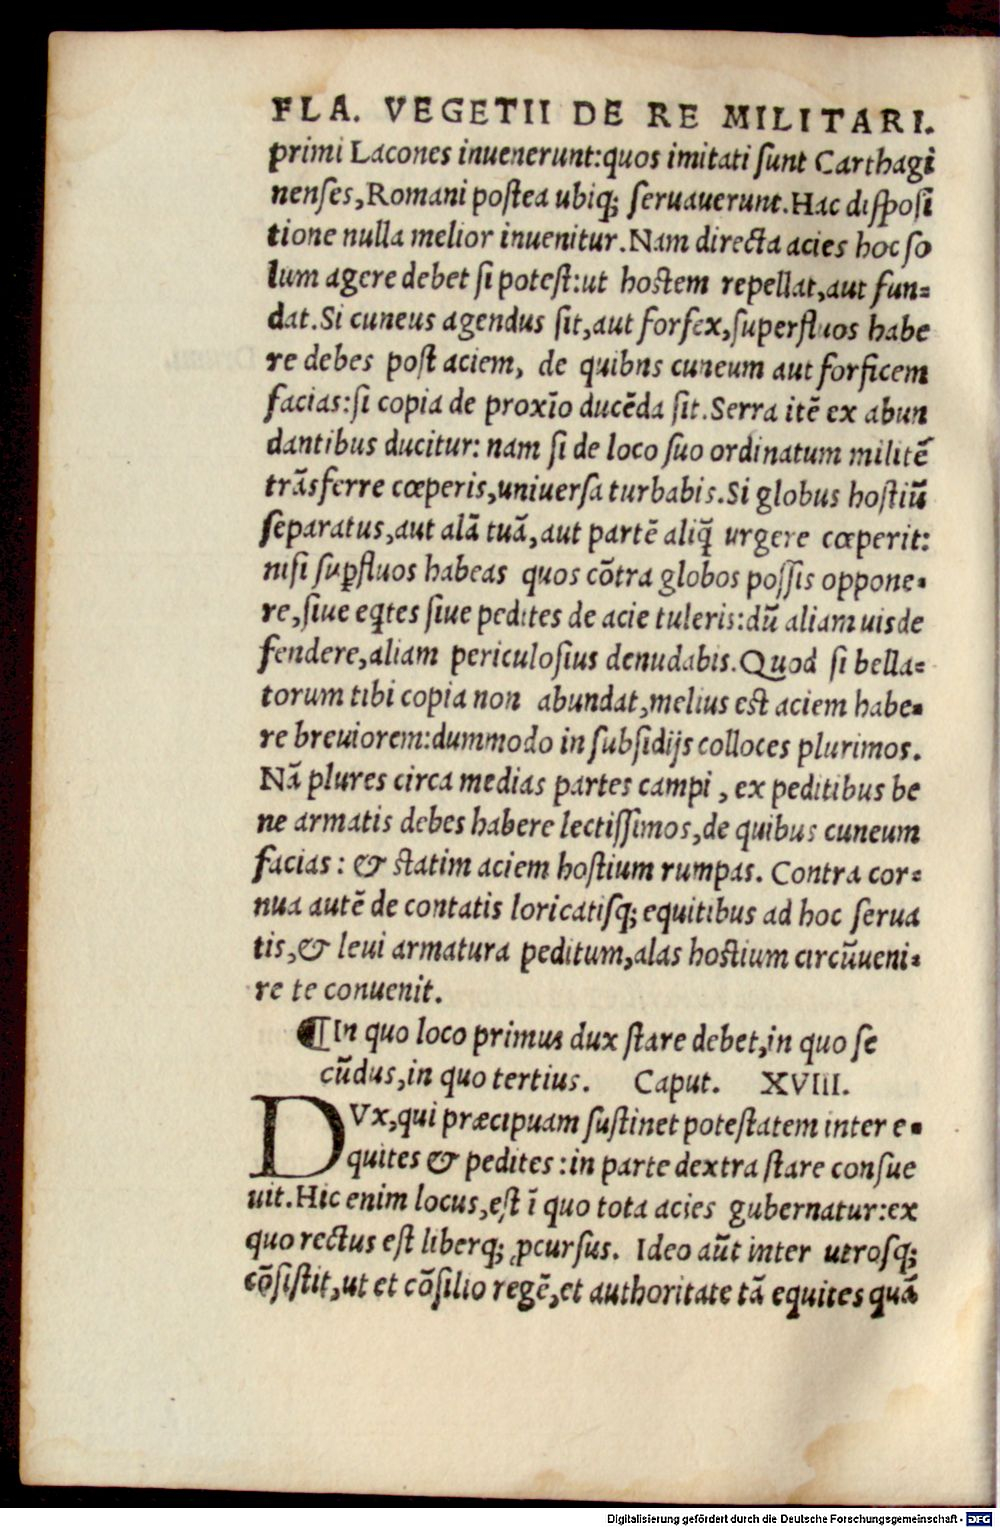 FLA. VEGETII DE RE MILITARI.
primi Lacones inuenerunt:quos imitati ſunt Carthagi
nenſes,Romani poſtea ubiq; ſeruauerunt.Hac diſpoſi
tione nulla melior inuenitur.Nam directa acies hoc ſo
lum agere debet ſi poteſt:ut hoſtem repellat,aut fun-
dat.Si cuneus agendus ſit,aut forfex,ſuperfluos habe
re debes poſt aciem, de quibns cuneum aut forficem
facias:ſi copia de proxĩo ducẽda ſit.Serra itẽ ex abun
dantibus ducitur: nam ſi de loco ſuo ordinatum militẽ
trãsferre cœperis,uniuerſa turbabis.Si globus hoſtiũ
ſeparatus,aut alã tuã,aut partẽ aliq̃ urgere cœperit:
niſi ſuꝑfluos habeas quos cõtra globos poſſis oppone-
re,ſiue eqtes ſiue pedites de acie tuleris:dũ aliam uis de
fendere,aliam periculoſius denudabis.Quod ſi bella-
torum tibi copia non abundat,melius eſt aciem habe-
re breuiorem:dummodo in ſubſidijs colloces plurimos.
Nã plures circa medias partes campi , ex peditibus be
ne armatis debes habere lectiſſimos,de quibus cuneum
facias: & ſtatim aciem hoſtium rumpas. Contra cor-
nua autẽ de contatis loricatiſq; equitibus ad hoc ſerua
tis,& leui armatura peditum,alas hoſtium circũueni-
re te conuenit.
¶In quo loco primus dux ſtare debet,in quo ſe
cũdus,in quo tertius. Caput. XVIII.
DVx,qui præcipuam ſuſtinet poteſtatem inter e-
quites & pedites:in parte dextra ſtare conſue
uit.Hic enim locus,eſt ĩ quo tota acies gubernatur:ex
quo rectus eſt liberq; ꝓcurſus. Ideo aũt inter utroſq;
cõſiſtit,ut et cõſilio regẽ,et authoritate tã equites quã
Digitalisierung gefördert durch die Deutsche Forschungsgemeinschaft - DFG